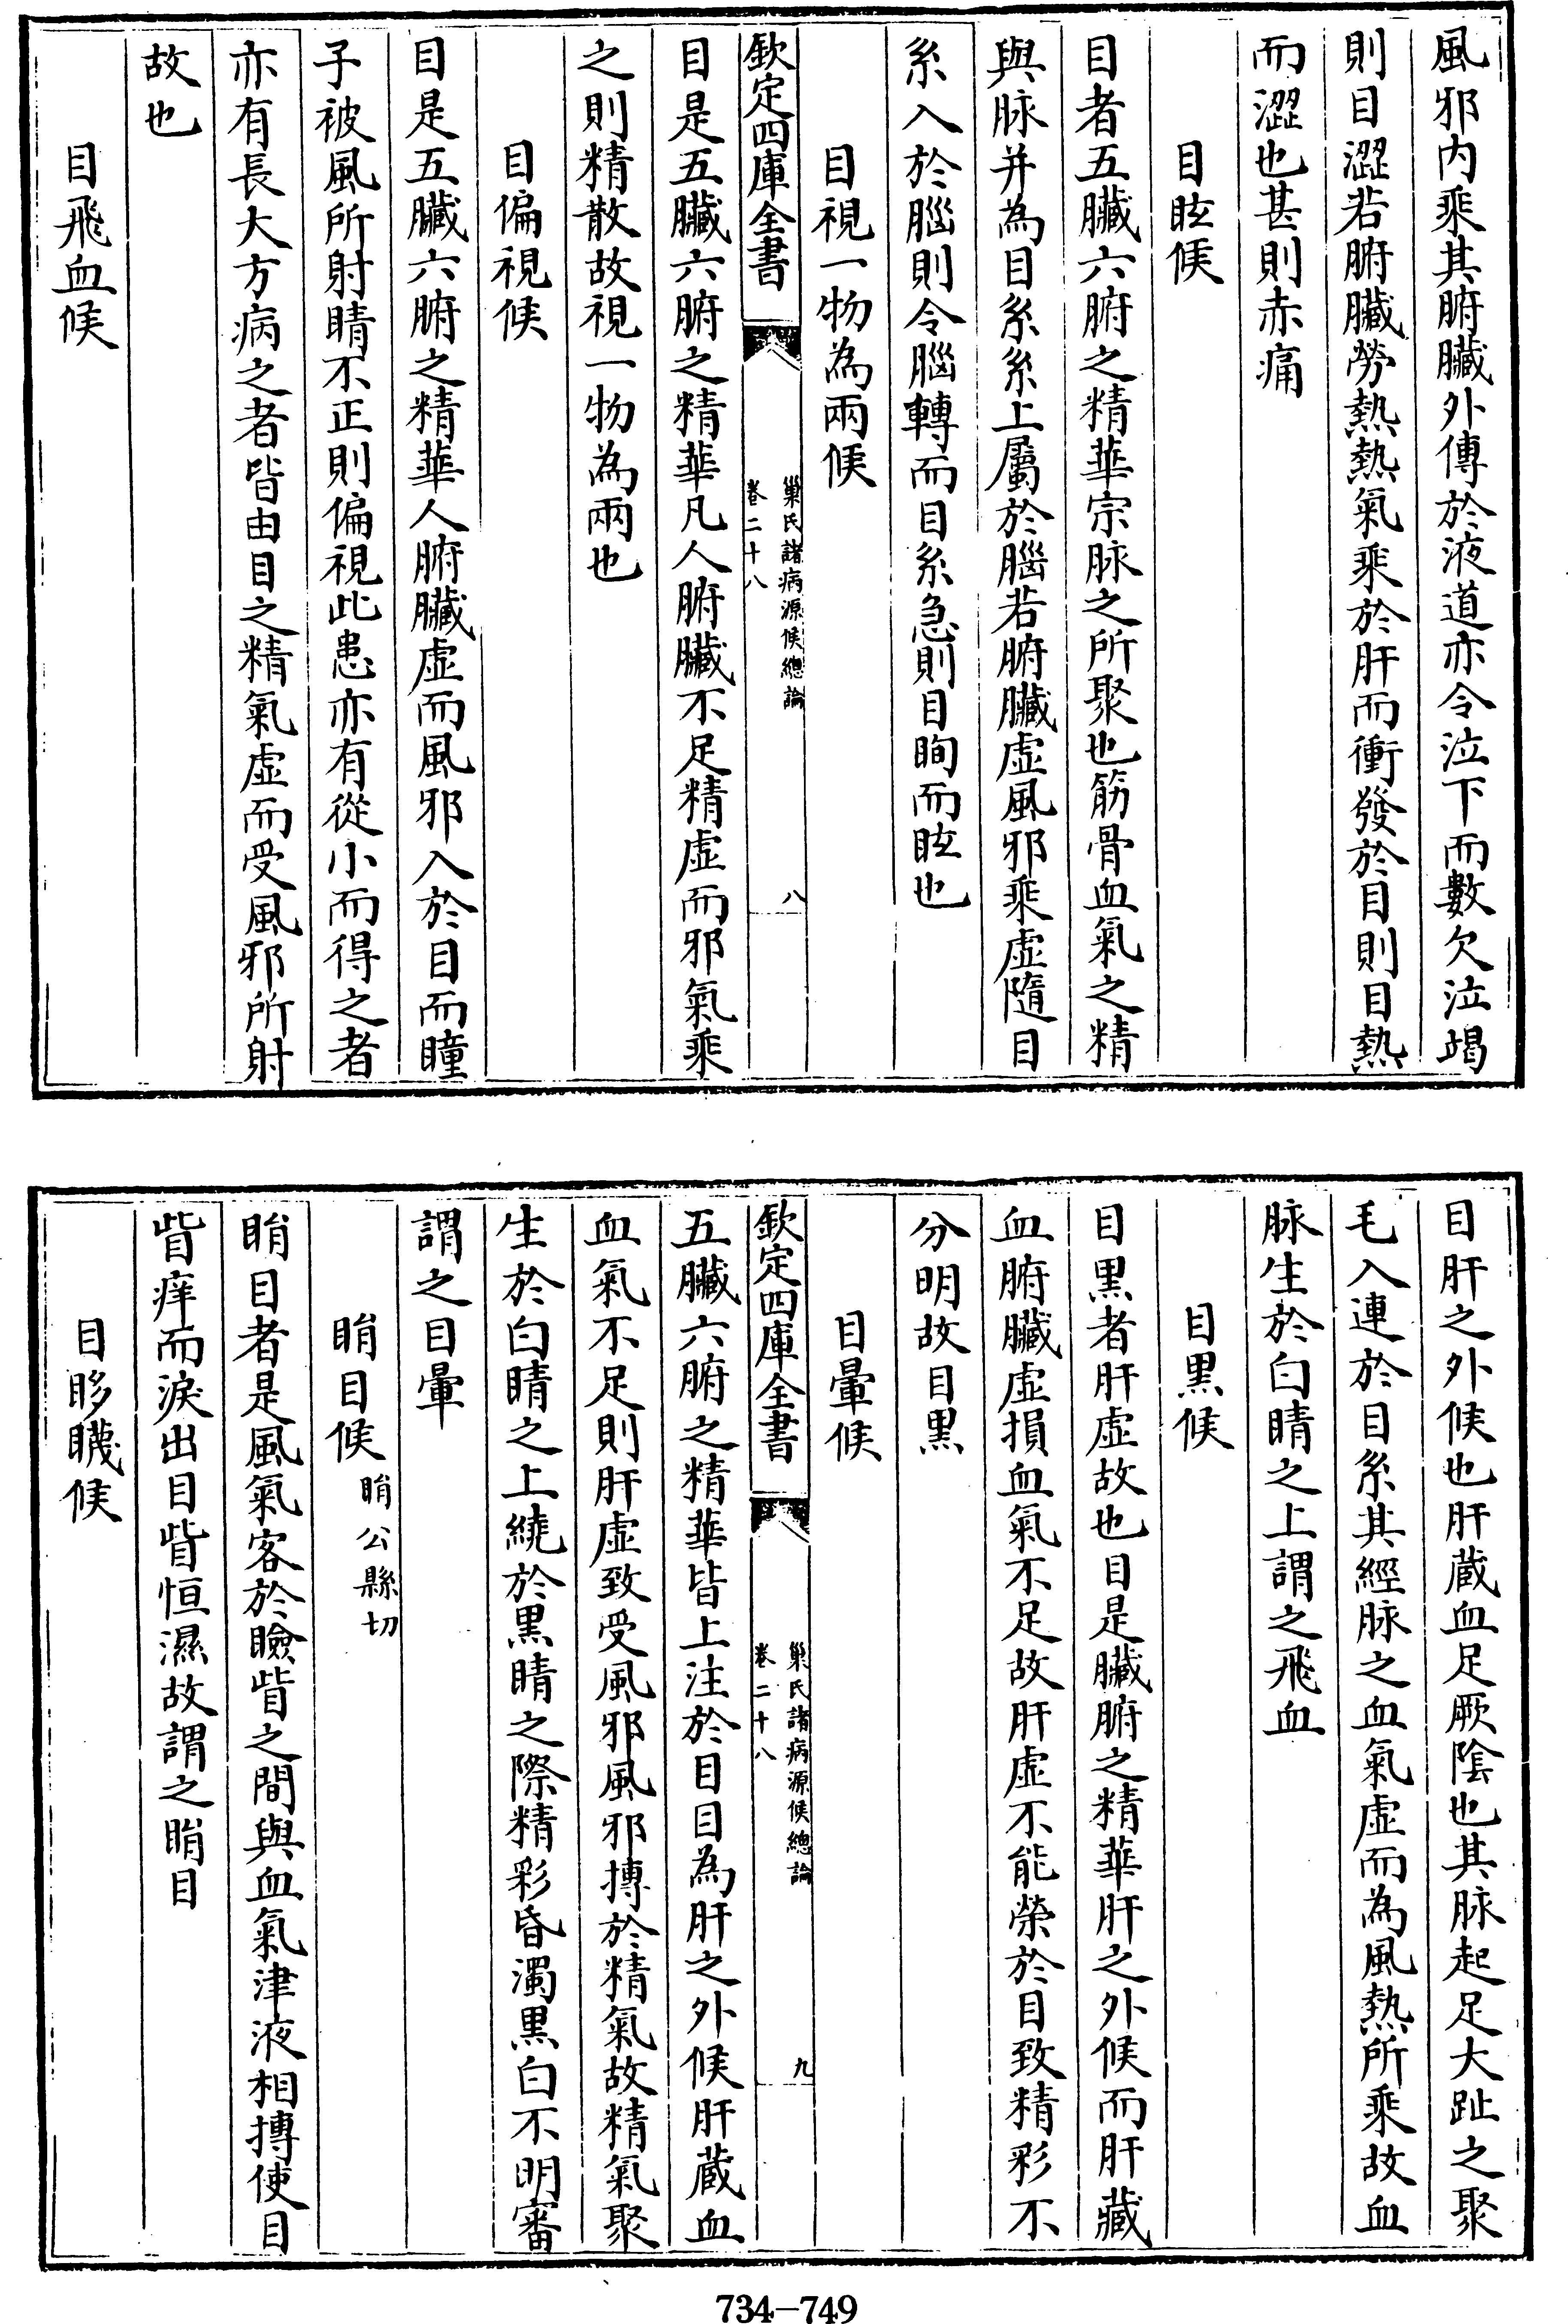 風邪内乘其腑臟外傳於液道亦令泣下而數欠泣竭
則目澀若腑臟勞熱熱氣乘於肝而衝發於目則目熱
而澀也甚則赤痛
目眩候
目者五臟六腑之精華宗脉之所聚也筋骨血氣之精
與脉并為目系系上屬於腦若腑臟虛風邪乘虛隨目
系入於腦則令腦轉而目系急則目眴而眩也
目視一物為兩候
欽定四庫全書
巢氏諸病源候總論
卷二十八
八
目是五臟六腑之精華凡人腑臟不足精虛而邪氣乘
之則精散故視一物為兩也
目偏視候
目是五臟六腑之精華人腑臟虛而風邪入於目而瞳
子被風所射睛不正則偏視此患亦有從小而得之者
亦有長大方病之者皆由目之精氣虛而受風邪所射
故也
目飛血候
目肝之外候也肝蔵血足厥陰也其脉起足大趾之聚
毛入連於目系其經脉之血氣虛而為風熱所乘故血
脉生於白睛之上謂之飛血
目黑候
目黑者肝虛故也目是臟腑之精華肝之外候而肝藏
血腑臟虛損血氣不足故肝虛不能榮於目致精彩不
分明故目黑
目暈候
欽定四庫全書
巢氏諸病源候總論
卷二十八
九
五臟六腑之精華皆上注於目目為肝之外候肝蔵血
血氣不足則肝虛致受風邪風邪摶於精氣故精氣聚
生於白睛之上繞於黑睛之際精彩昏濁黒白不明審
謂之目暈
睊目候睊公縣切
睊目者是風氣客於瞼眥之間與血氣津液相摶使目
眥痒而淚出目眥恒濕故謂之睊目
目眵䁾候
734—749